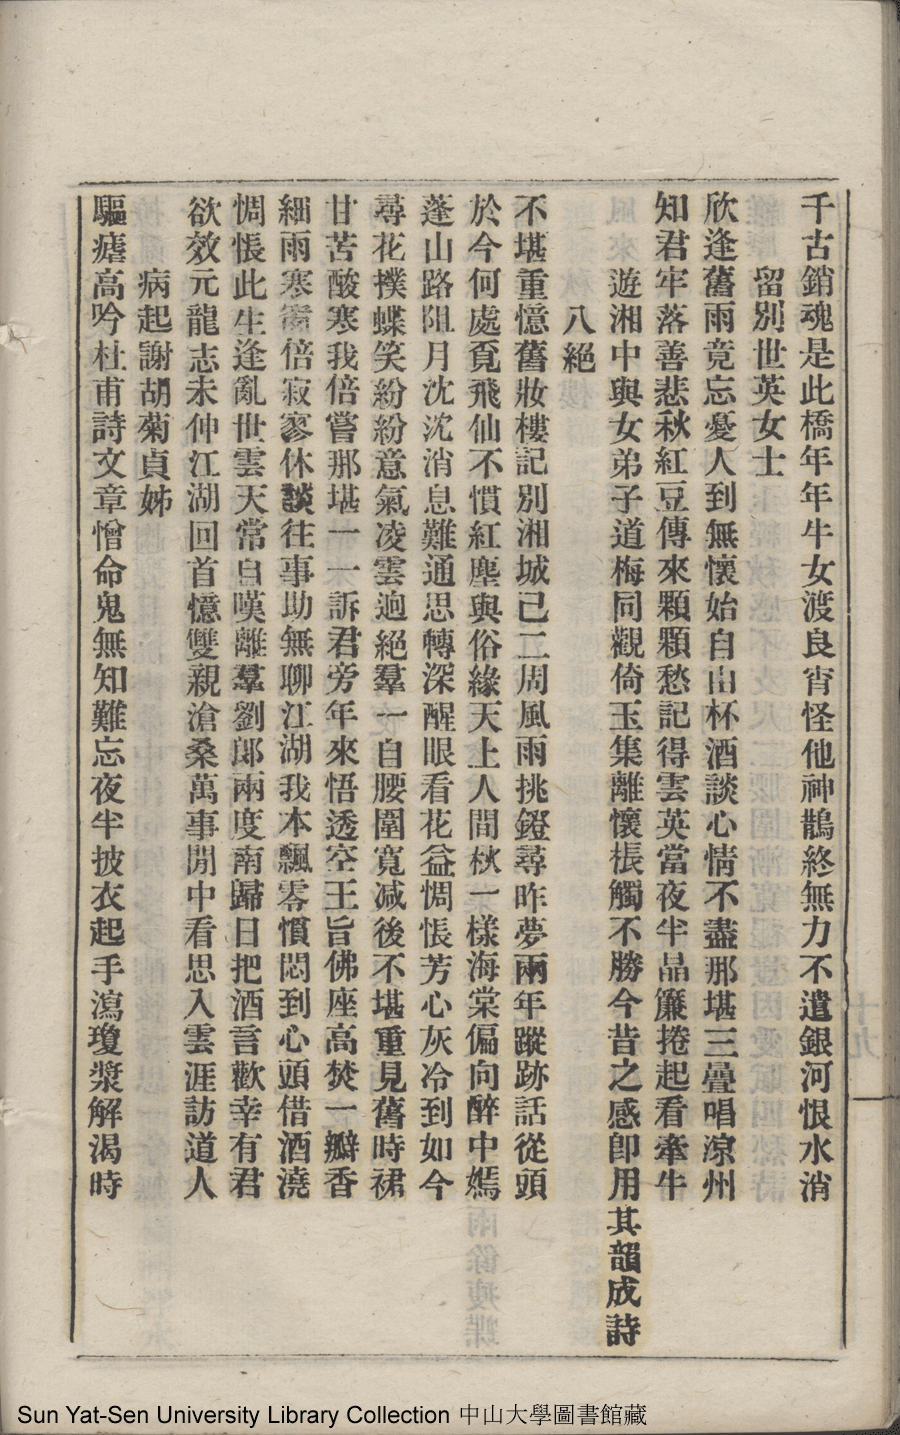 千古銷魂是此橋年年牛女渡良宵怪他神鵲終無力不遣銀河恨水消
留別世英女士
欣逢舊雨竟忘憂人到無懷始自由杯酒談心情不盡那堪三疊唱涼州
知君牢落善悲秋紅豆傳來顆顆愁記得雲英當夜半晶簾捲起看牽牛
遊湘中與女弟子道梅同觀倚玉集離懷棖觸不勝今昔之感即用其韻成詩
八絕
不堪重憶舊妝樓記別湘城已二周風雨挑鐙尋昨夢兩年蹤跡話從頭
於今何處覓飛仙不慣紅塵與俗緣天上人間秋一樣海棠偏向醉中嫣
蓬山路阻月沈沈消息難通思轉深醒眼看花益惆悵芳心灰冷到如今
尋花撲蝶笑紛紛意氣凌雲逈絕羣一自腰圍寬減後不堪重見舊時裙
甘苦酸寒我倍嘗那堪一一訴君旁年來悟透空王旨佛座高焚一瓣香
細雨寒窗倍寂寥休談往事助無聊江湖我本飄零慣悶到心頭借酒澆
惆悵此生逢亂世雲天常自嘆離羣劉郎兩度南歸日把酒言歡幸有君
欲效元龍志未伸江湖回首憶雙親滄桑萬事閒中看思入雲涯訪道人
病起謝胡菊貞姊
驅瘧高吟杜甫詩文章憎命鬼無知難忘夜半披衣起手瀉瓊漿解渴時
十九
Sun Yat-Sen University Library Collection 中山大學圖書館藏